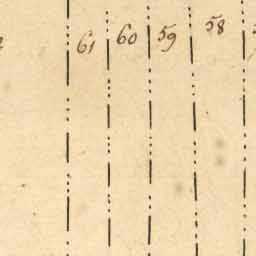 61 60 59 58